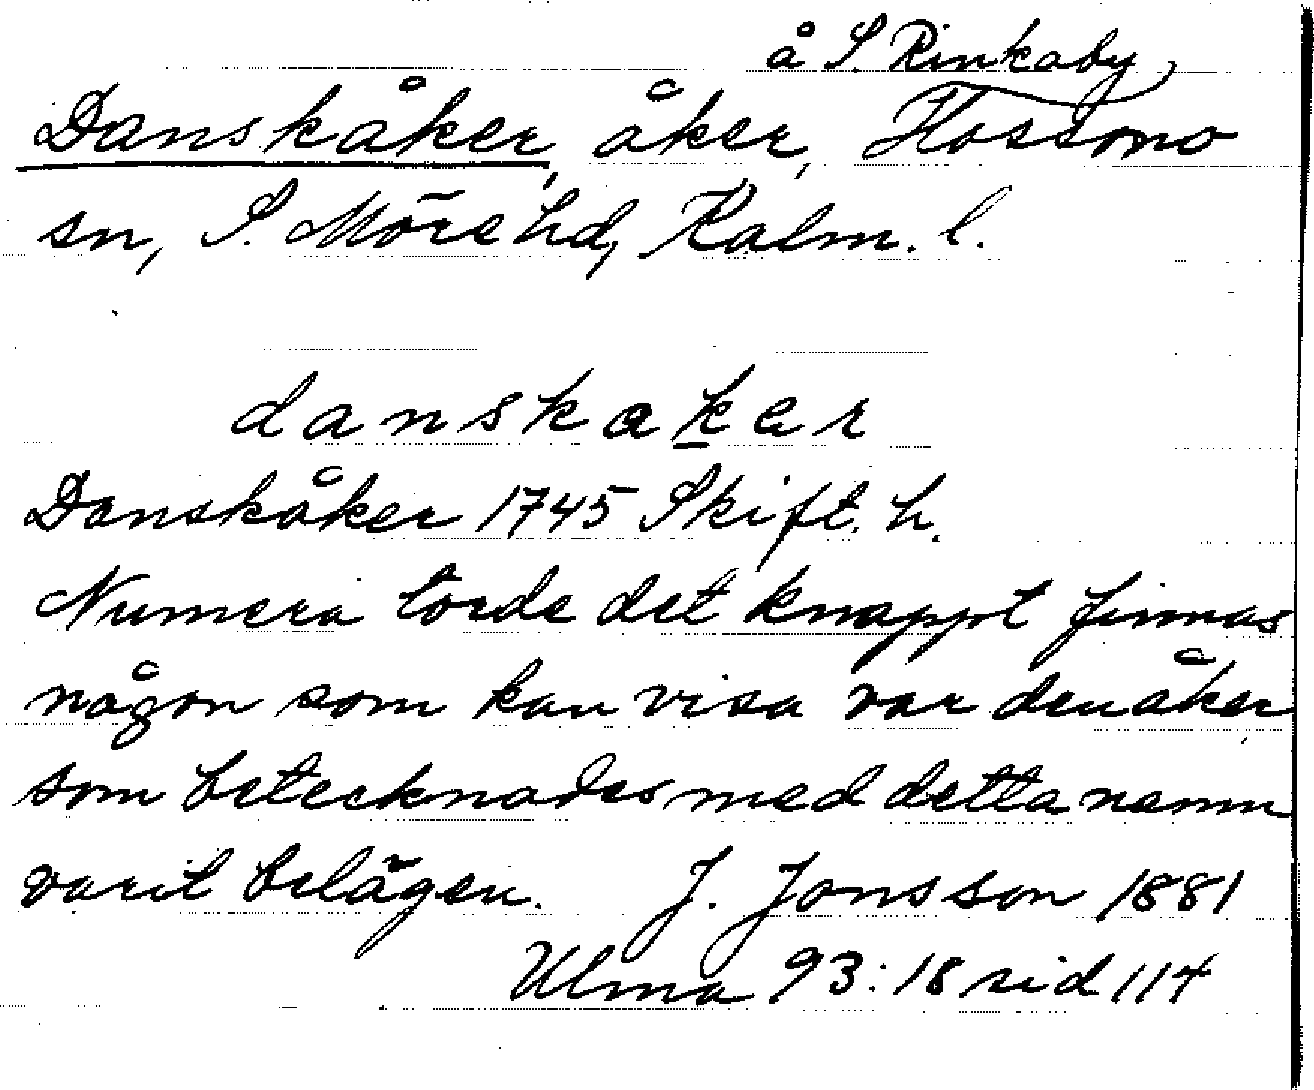 å S. Rinkaby,
Danskåker, åker, Hossmo
sn, S. Möre hd, Kalm. l.
danskaker
Danskåker 1745 Skift. h.
Numera torde det knappt finnas
någon som kan visa var den åker
som betecknades med detta namn
varit belägen. J. Jonsson 1881
Ulma 93:18 sid 114